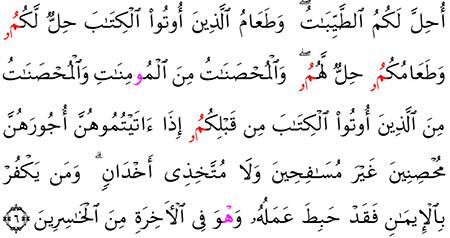 أُحِلَّ لَكُمُ الطَّيِّبَٰتُۖ وَطَعَامُ الَّذِينَ أُوتُوا۟ الْكِتَٰبَ حِلٌّ لَّكُمُۥ
وَطَعَامُكُمُۥ حِلٌّ لَّهُمُۥۖ وَالْمُحْصَنَٰتُ مِنَ الْمُومِنَٰتِ وَالْمُحْصَنَٰتُ
مِنَ الَّذِينَ أُوتُوا۟ الْكِتَٰبَ مِن قَبْلِكُمُۥ إِذَا ءَاتَيْتُمُوهُنَّ أُجُورَهُنَّ
مُحْصِنِينَ غَيْرَ مُسَٰفِحِينَ وَلَا مُتَّخِذِى أَخْدَانٍۗ وَمَن يَكْفُرْ
بِالْإِيمَٰنِ فَقَدْ حَبِطَ عَمَلُهُۥ وَهْوَ فِى الْأَخِرَةِ مِنَ الْخَٰسِرِينَ ٦